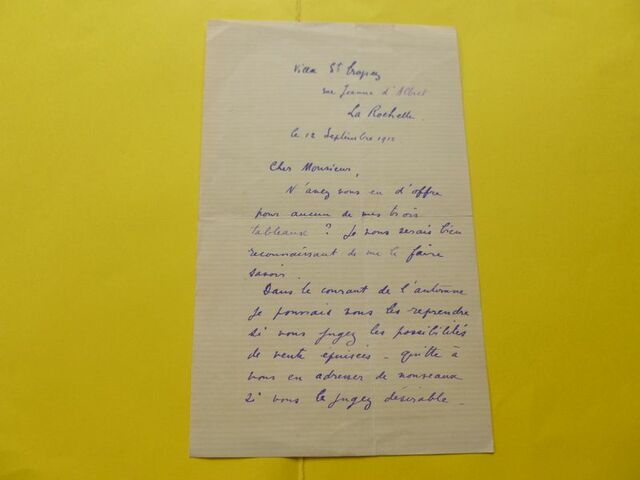 Villa St Tropez
rue Jeanne d'Albret
La Rochelle.
le 12 Septembre 1912
Cher Monsieur,
N'avez vous eu d'offre
pour aucun de mes trois
tableaux ? Je vous serais bien
reconnaissant de me le faire
savoir.
Dans le courant de l'automne
je pourrais vous les reprendre
si vous jugez les possibilités
de vente épuisées - quitte à
vous en adresser de nouveaux
si vous le jugez désirable -